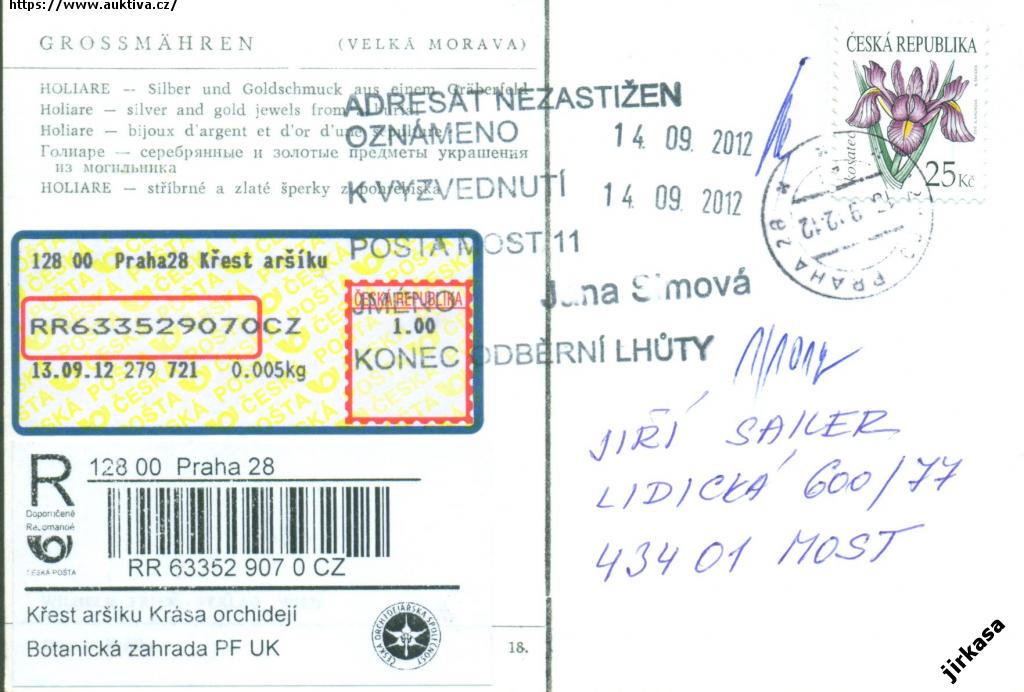 https://www.auktiva.cz/
GROSSMÄHREN (VELKÁ MORAVA)
HOLIARE — Silber und Goldschmuck aus einem Gräberfeld
Holiare — silver and gold jewels from a burial
Holiare — bijoux d'argent et d'or d'une sépulture
Голиаре — серебрянные и золотые предметы украшения
из могильника
HOLIARE — stříbrné a zlaté šperky z pohřebiska
ADRESÁT NEZASTIŽEN
OZNÁMENO 14. 09. 2012
K VYZVEDNUTÍ 14. 09. 2012
POŠTA MOST 11
JMÉNO Jana Šímová
KONEC ODBĚRNÍ LHŮTY
ČESKÁ REPUBLIKA
kosatec
25 Kč
PRAHA 28
13.9.12-12
128 00 Praha28 Křest aršíku
RR633529070CZ
13.09.12 279 721 0.005kg
ČESKÁ REPUBLIKA
1.00
JIŘÍ SAILER
LIDICKÁ 600/77
434 01 MOST
R 128 00 Praha 28
Doporučeně
Recomandé
ČESKÁ POŠTA
RR 63352 907 0 CZ
Křest aršíku Krása orchidejí
Botanická zahrada PF UK
ČESKÁ ORCHIDEJÁŘSKÁ SPOLEČNOST
18.
jirkasa